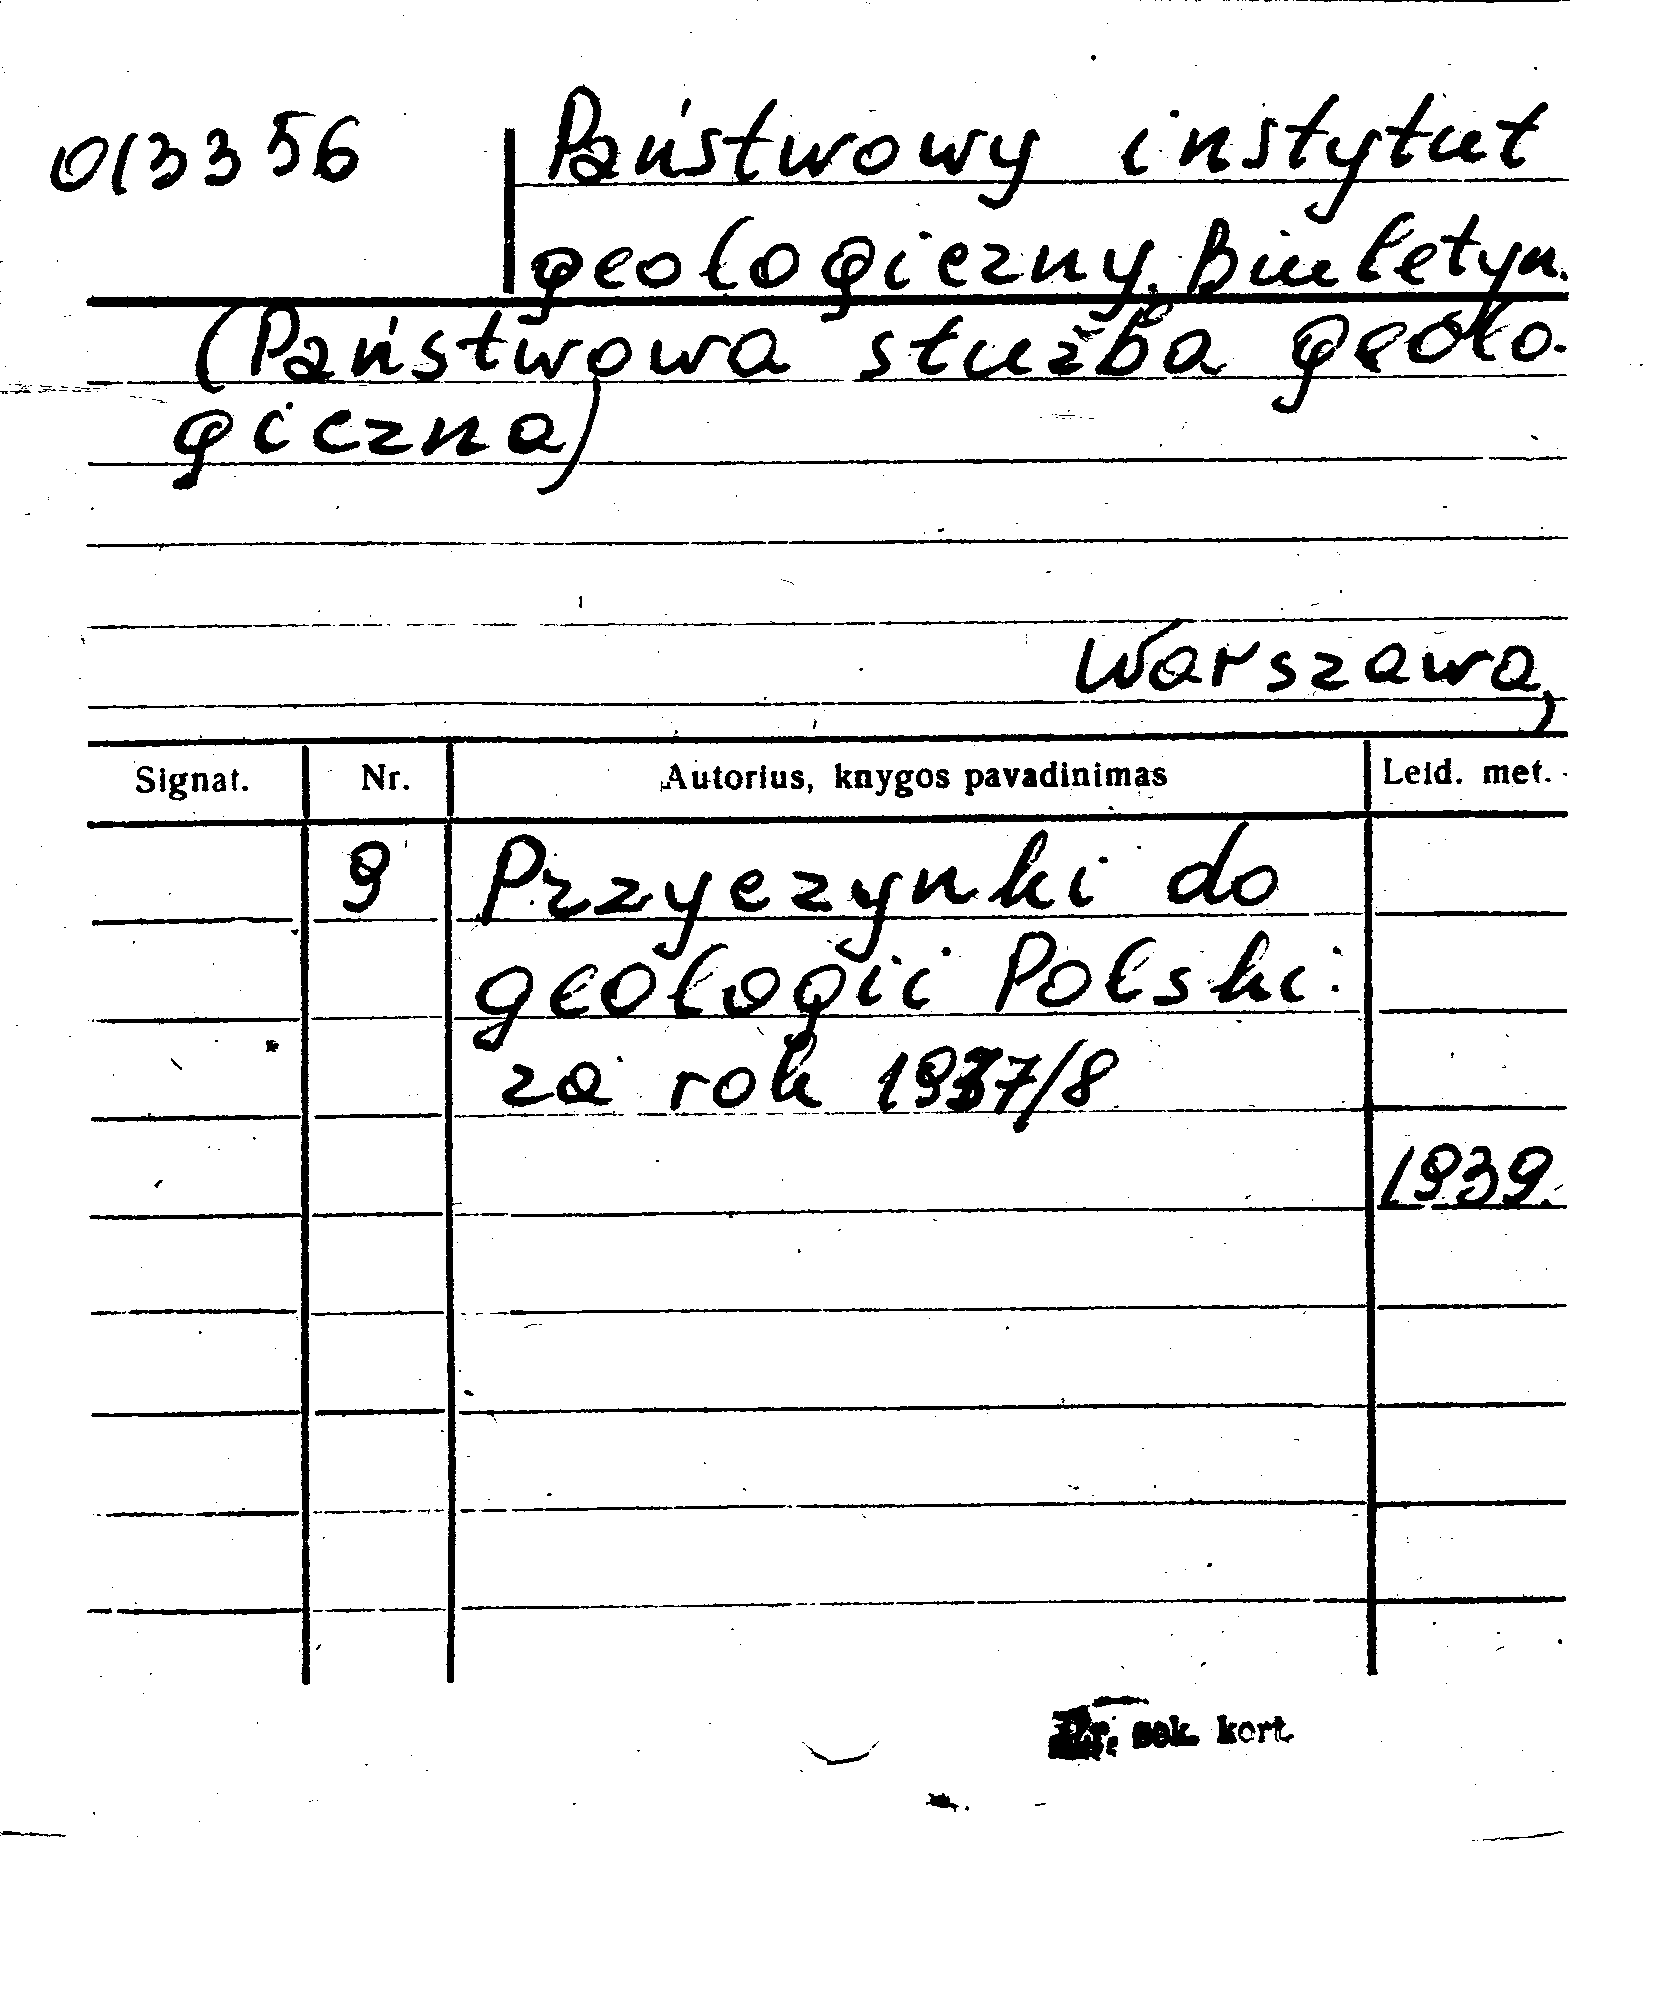 013356
Państwowy instytut
geologiczny. Biuletyn.
(Państwowa służba geolo-
giczna)
Warszawa,
Signat. Nr. Autorius, knygos pavadinimas Leid. met.
9 Przyczynki do
geologii Polski
za rok 1937/8
1939.
sek. kort.